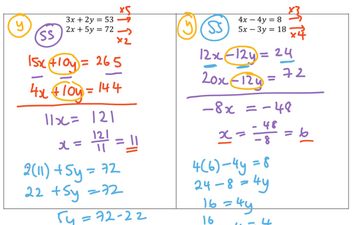 y
SS
3x + 2y = 53
2x + 5y = 72
x5
x2
15x + 10y = 265
4x + 10y = 144
11x = 121
x = 121/11 = 11
2(11) + 5y = 72
22 + 5y = 72
5y = 72 - 22
y
SS
4x − 4y = 8
5x − 3y = 18
x3
x4
12x - 12y = 24
20x - 12y = 72
-8x = -48
x = -48/-8 = 6
4(6) - 4y = 8
24 - 8 = 4y
16 = 4y
16